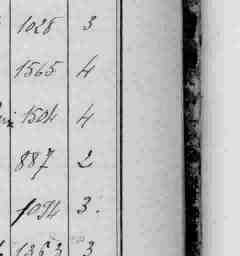 1028 3
1565 4
1504 4
887 2
1094 3.
1363 3